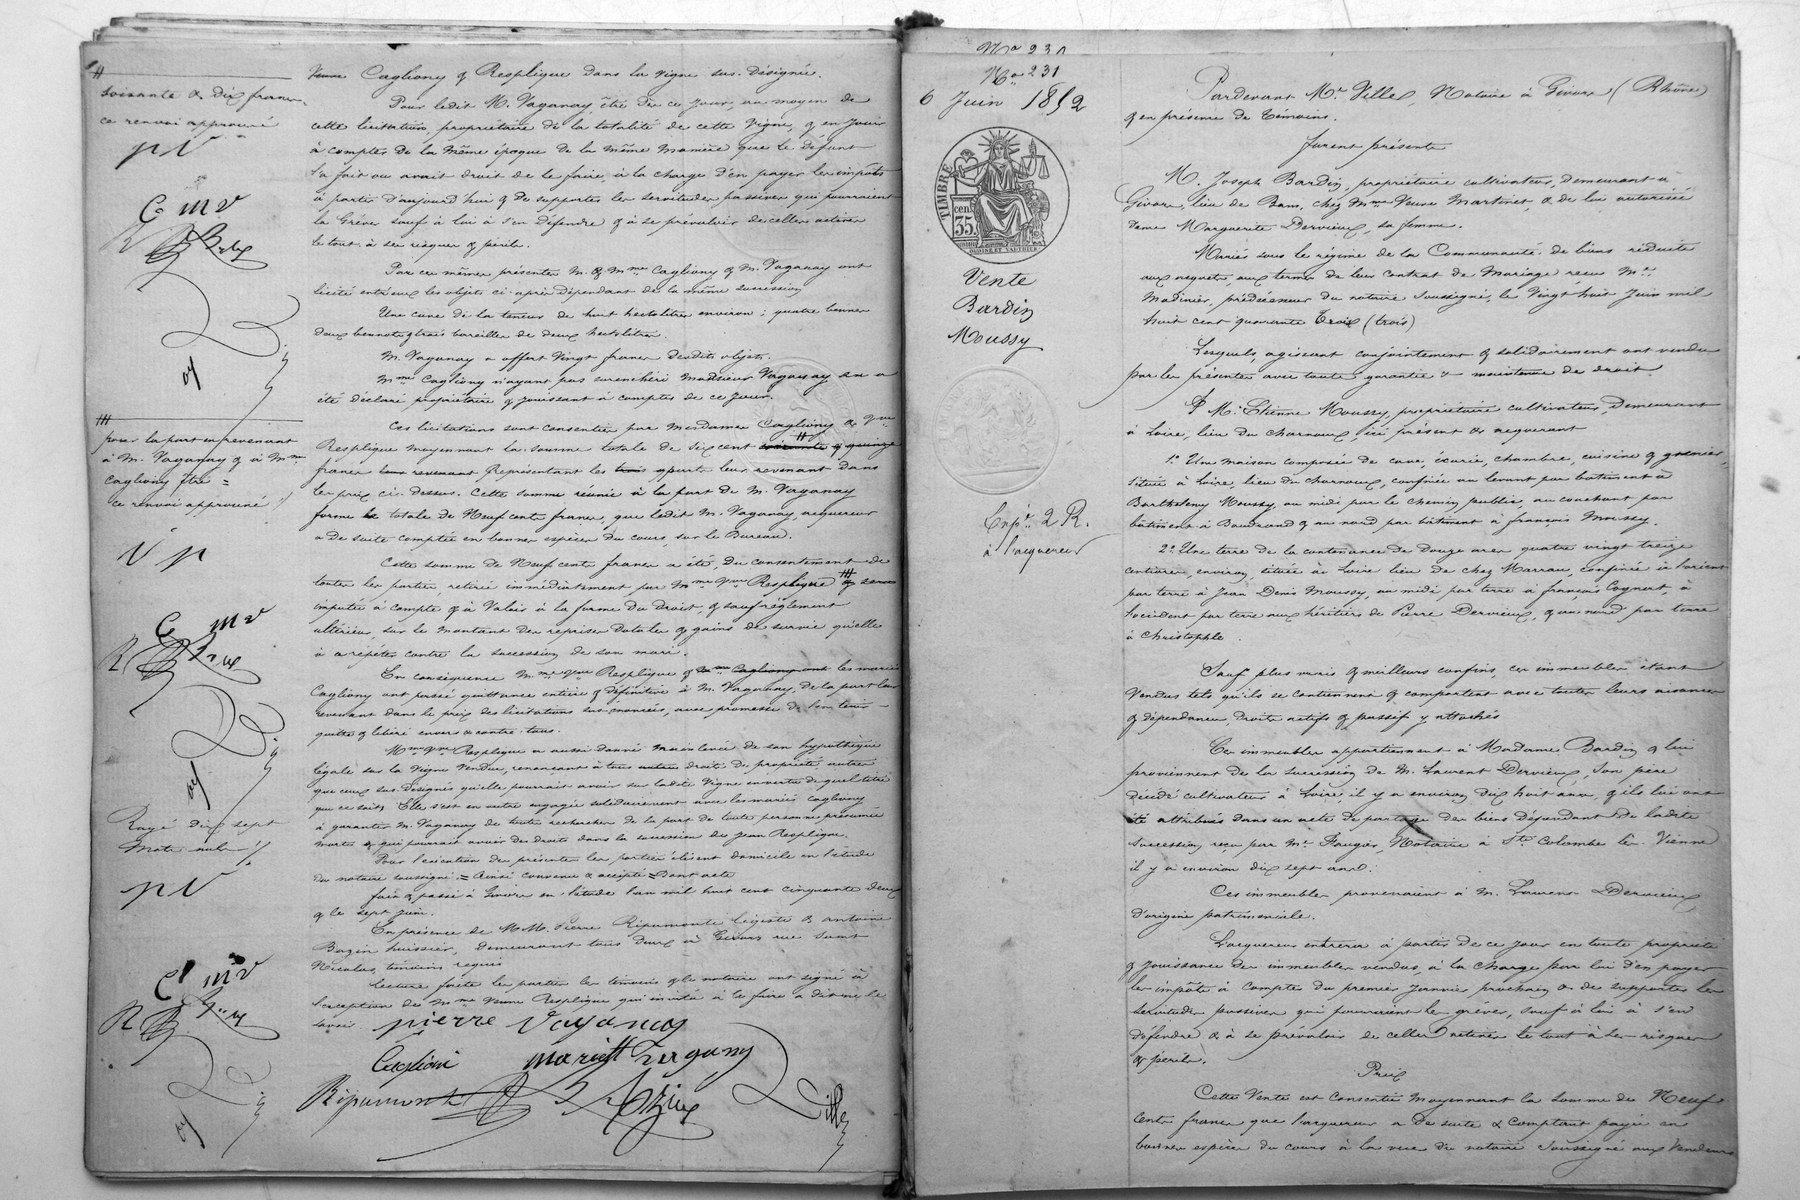 soixante & dix francs
ce renvoi approuvé
pV
C mv
R
pour la part en revenant
à M. Vaganay & à Mme
Cagliony être =
ce renvoi approuvé
V p
C mv
R
Rayé dix sept
mots nuls
pV
C mv
R
Veuve Cagliony & Resplique dans la vigne sus-désignée.
Pour ledit M. Vaganay être dès ce jour, au moyen de
cette licitation, propriétaire de la totalité de cette vigne, & en jouir
à compter de la même époque de la même manière que le défunt
l'a fait ou avait droit de le faire, à la charge d'en payer les impôts
à partir d'aujourd'hui & de supporter les servitudes passives qui pourraient
la Grêver sauf à lui à s'en défendre & à se prévaloir de celles actives
le tout à ses risques & périls.
Par ces mêmes présentes M. & Mme Cagliony & M. Vaganay ont
licité entr'eux les objets ci-après dépendant de la même succession
Une cuve de la teneur de huit hectolitres environ ; quatre bennes
deux bennots & trois bareilles de deux hectolitres.
M. Vaganay a offert vingt francs desdits objets.
Mme Cagliony n'ayant pas surenchéri Monsieur Vaganay en a
été déclaré propriétaire & jouissant à compter de ce jour.
Ces licitations sont consenties par Mesdames Cagliony & Vve
Resplique moyennant la somme totale de six cent soixante & quinze
francs leur revenant représentant les trois quarts leur revenant dans
les prix ci-dessus. Cette somme réunie à la part de M. Vaganay
forme le totale de Neuf cents francs, que ledit M. Vaganay, acquéreur
a de suite comptée en bonnes espèces du cours, sur le Bureau.
Cette somme de Neuf cents francs a été, du consentement de
toutes les parties, retirée immédiatement par Mme Vve Resplique
imputée à compte & à valoir à la forme du Droit, & sauf règlement
ultérieur, sur le montant des reprises dotales & gains de survie qu'elle
a à répéter contre la succession de son mari.
En conséquence Mme Vve Resplique & Mme Caglionny ont les mariés
Caglionny ont passé quittance entière & définitive à M. Vaganay, de la part leur
revenant dans le prix des licitations sus-énoncées, avec promesse de l'en tenir
quitte & libéré envers & contre tous.
Mme Vve Resplique a aussi donné mainlevée de son hypothèque
légale sur la vigne vendue, renonçant à tous autres droits de propriété autres
que ceux sus désignés qu'elle pourrait avoir sur ladite vigne en vertu de quel titre
que ce soit. Elle s'est en outre engagée solidairement avec les mariés Caglionny
à garantir M. Vaganay de toute recherches de la part de toute personne présumée
morte & qui pourrait avoir des droits dans la succession de Jean Resplique.
Pour l'exécution des présentes les parties élisent domicile en l'étude
du notaire soussigné = Ainsi convenu & accepté = Dont acte
fait & passé à Givors en l'étude l'an mil huit cent cinquante deux
& le sept juin.
En présence de MM. Pierre Ripamonte légiste & antoine
Bazin huissier, demeurant tous deux à Givors rue Saint
Nicolas, témoins requis
Lecture faite les parties les témoins & le notaire ont signé à
l'exception de Mme Veuve Resplique qui invitée à le faire a dit ne le
savoir
pierre Vaganay
Caglioni
Ripamonte
Ville
No 230
No 231
6 Juin 1852
TIMBRE
35 cen
Vente
Bardin
Moussy
Expn 2 R.
à l'acquéreur
Pardevant Me Ville, Notaire à Givors (Rhône)
& en présence de témoins.
furent présents
M. Joseph Bardin, propriétaire cultivateur, demeurant à
Givors, lieu de Bans, chez Mme Veuve Martinet, & de lui autorisée
dame Marguerite Dervieux, sa femme.
Mariés sous le régime de la Communauté de biens réduite
aux acquets, aux termes de leur contrat de Mariage reçu Me
Madinier, prédécesseur du notaire soussigné, le Vingt huit Juin mil
huit cent quarante Trois (trois)
Lesquels, agissant conjointement & solidairement ont vendu
par les présentes avec toute garantie & maintenue de droit
M. Etienne Moussy, propriétaire cultivateur, demeurant
à Loire, lieu du charnoux, ici présent & acquérant
1º Une maison composée de cave, écurie, chambre, cuisine & grenier,
située à Loire, lieu du charnoux, confinée au levant par bâtiment à
Barthélemy Moussy, au midi par le chemin public, au couchant par
bâtiment à Baudrand & au nord par bâtiment à françois Moussy.
2º Une terre de la contenance de Douze ares quatre vingt treize
centiares, environ, située à Loire lieu de chez Marrau, confinée à l'orient
par terre à Jean Denis Moussy, au midi par terre à françois Cognat, à
l'occident par terre aux héritiers de Pierre Dervieux, & au nord par terre
à Christophle.
Sauf plus vrais & meilleurs confins, ces immeubles étant
Vendus tels qu'ils se contiennent & comportent avec toutes leurs aisances
& dépendances, droits actifs & passifs y attachés
Ces immeubles appartiennent à Madame Bardin & lui
proviennent de la succession de M. Laurent Dervieux, son père
décédé cultivateur à Loire, il y a environ dix huit ans, & ils lui ont
été attribués dans un acte de partage des biens dépendant de ladite
succession reçu par Me Notaire à Ste Colombe lès Vienne
il y a environ dix sept ans.
Ces immeubles provenaient à M. Laurent Dervieux
d'origine patrimoniale.
L'acquéreur entrera à partir de ce jour en toute propriété
& jouissance des immeubles vendus, à la charge par lui d'en payer
les impôts à compter du premier janvier prochain & de supporter les
servitudes passives qui pourraient les gréver, sauf à lui à s'en
défendre & à se prévaloir de celles actives le tout à ses risques
& périls.
Prix
Cette Vente est consentie moyennant la somme de Neuf
Cents francs que l'acquéreur a de suite & comptant payée en
bonnes espèces du cours à la vue du notaire soussigné aux Vendeurs